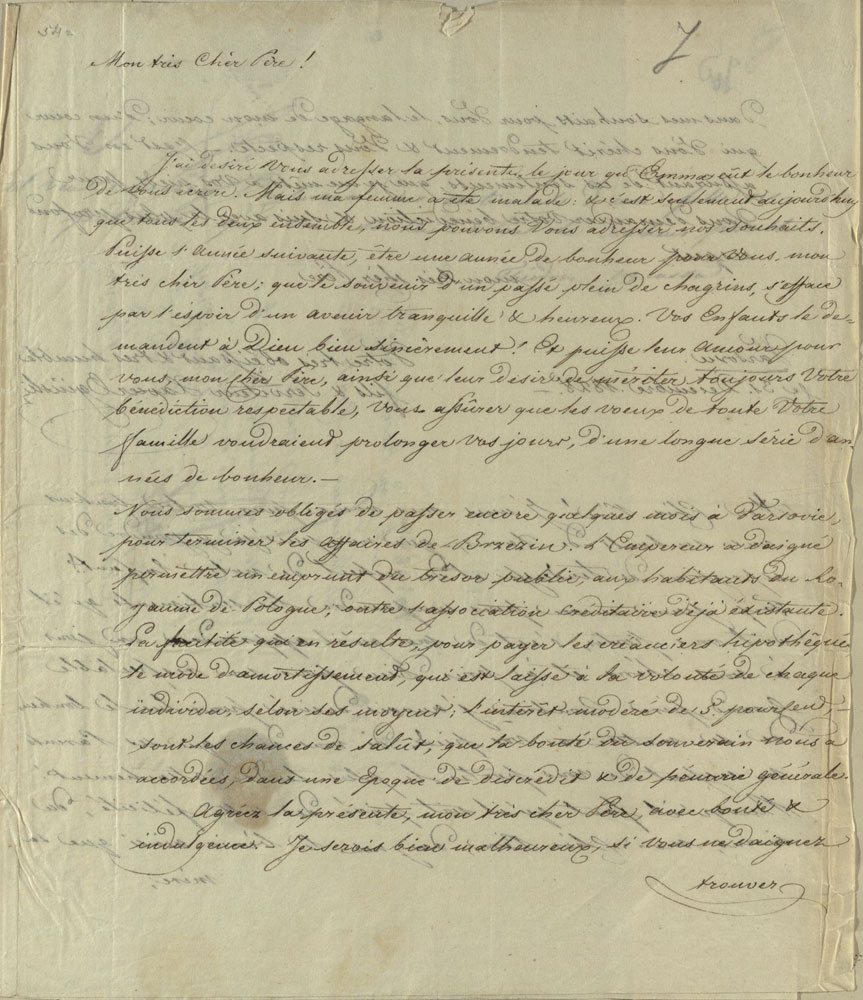 54
Mon très Cher Père!
J'ai desiré Vous adresser la présente, le jour où Emma eût le bonheur
de Vous écrire. Mais ma femme a été malade: & c'est seulement aujourd'huy
que tous les deux ensemble, nous pouvons Vous adresser nos souhaits.
Puisse l'Année suivante, être une année de bonheur pour Vous, mon
très cher Père; que le souvenir d'un passé plein de chagrins, s'efface
par l'espoir d'un avenir tranquille & heureux. Vos Enfants le de-
mandent à Dieu bien sincèrement! Et puisse leur Amour pour
vous, mon cher Père, ainsi que leur desir de mériter toujours Votre
bénédiction respectable, Vous assûrer que les voeux de toute Votre
famille voudraient prolonger vos jours, d'une longue série d'an-
nées de bonheur.—
Nous sommes obligés de passer encore quelques mois à Varsovie,
pour terminer les affaires de Brzezin. L'Empereur a daigné
permettre un emprunt du trésor public, aux habitants du Ro-
yaume de Pologne, outre l'association Creditaire déjà éxistante.
La qui en résulte, pour payer les créanciers hipothéque
le mode d'amortissement, qui est laissé à la volonté de chaque
individu, sélon ses moyens; l'intérêt modéré de 5. pour cent,—
sont les chances de salut, que la bonté du souverain nous a
accordées, dans une Epoque de discrédit & de pénurie générale.
Agréez la présente, mon très cher Père, avec bonté &
indulgence. Je serois bien malheureux, si vous ne daignez
trouver